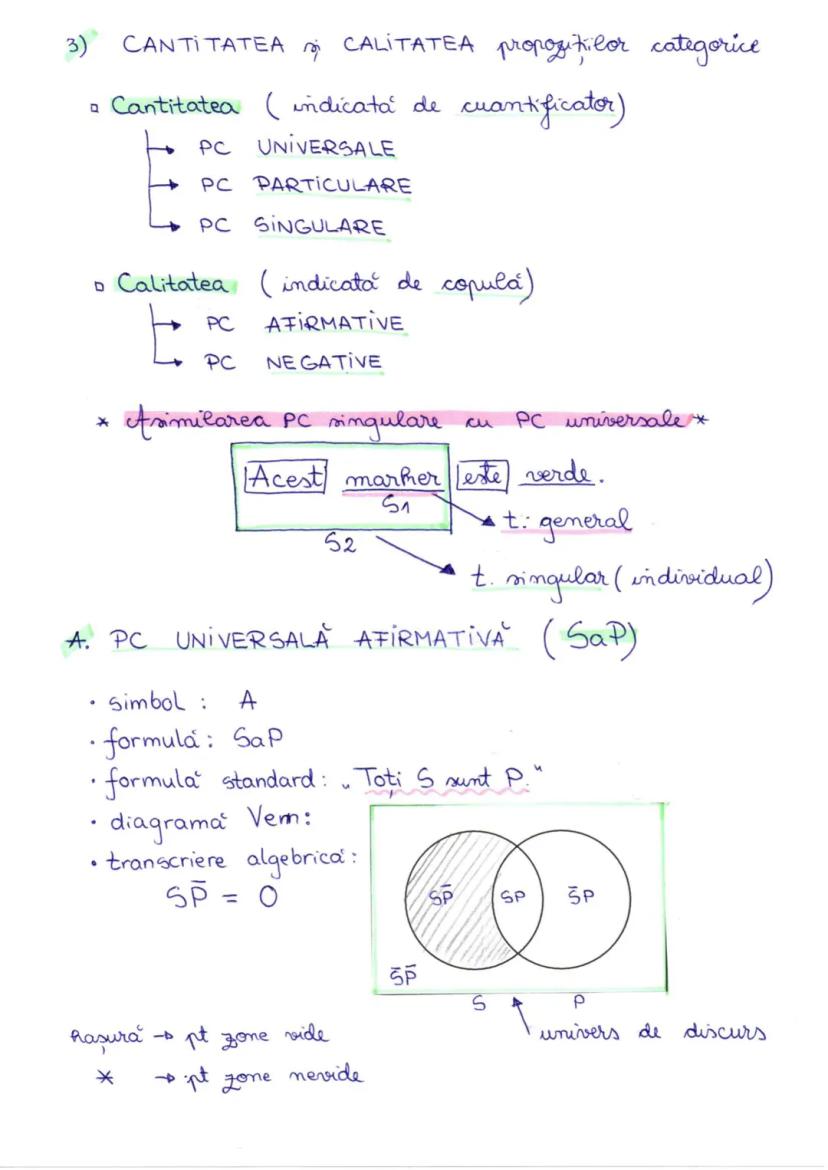 3) CANTITATEA și CALITATEA propozițiilor categorice
Cantitatea (indicată de cuantificator)
→ PC UNIVERSALE
→ PC PARTICULARE
→ PC SINGULARE
Calitatea (indicată de copulă)
→ PC AFIRMATIVE
→ PC NEGATIVE
* Asimilarea PC singulare cu PC universale *
Acest marker este verde.
S1
t. general
S2
t. singular (individual)
A. PC UNIVERSALĂ AFIRMATIVĂ (SaP)
• simbol : A
• formulă : SaP
• formulă standard : „Toți S sunt P."
• diagramă Venn:
• transcriere algebrică :
SP̄ = 0
SP̄ SP S̄P
S̄P̄
S P
Hașură → pt zone vide
univers de discurs
* → pt zone nevide